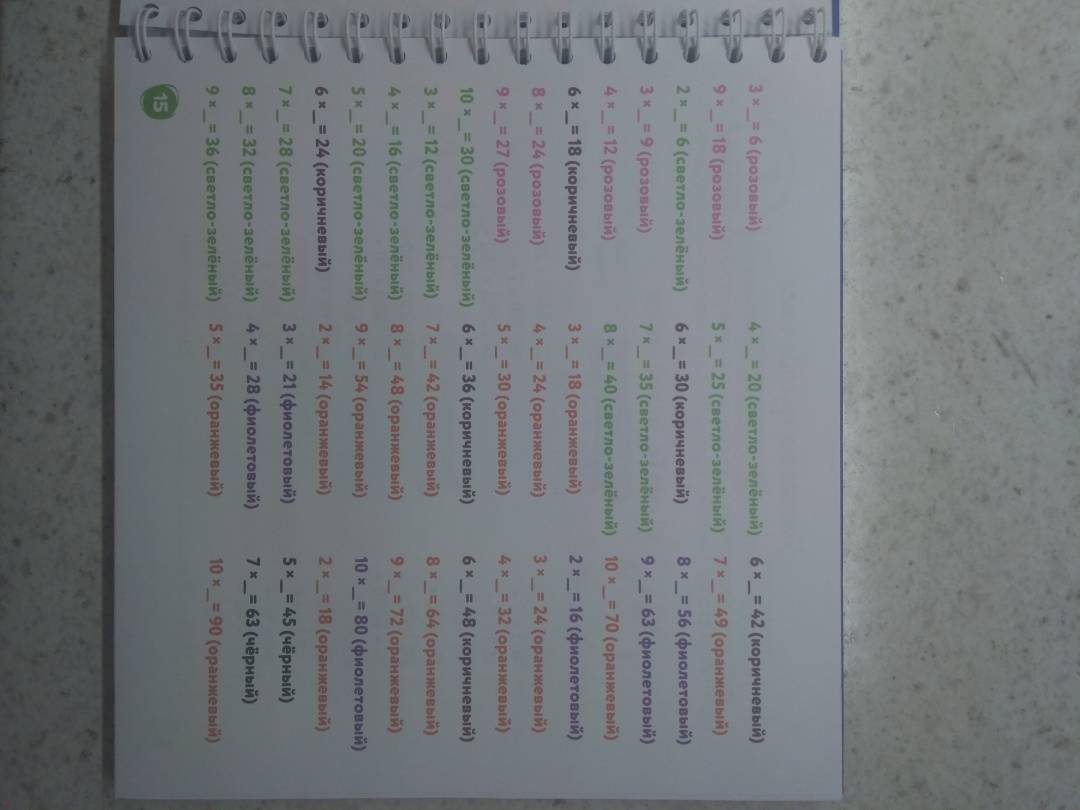 3 × _ = 6 (розовый)
9 × _ = 18 (розовый)
2 × _ = 6 (светло-зелёный)
3 × _ = 9 (розовый)
4 × _ = 12 (розовый)
6 × _ = 18 (коричневый)
8 × _ = 24 (розовый)
9 × _ = 27 (розовый)
10 × _ = 30 (светло-зелёный)
3 × _ = 12 (светло-зелёный)
4 × _ = 16 (светло-зелёный)
5 × _ = 20 (светло-зелёный)
6 × _ = 24 (коричневый)
7 × _ = 28 (светло-зелёный)
8 × _ = 32 (светло-зелёный)
9 × _ = 36 (светло-зелёный)
4 × _ = 20 (светло-зелёный)
5 × _ = 25 (светло-зелёный)
6 × _ = 30 (коричневый)
7 × _ = 35 (светло-зелёный)
8 × _ = 40 (светло-зелёный)
3 × _ = 18 (оранжевый)
4 × _ = 24 (оранжевый)
5 × _ = 30 (оранжевый)
6 × _ = 36 (коричневый)
7 × _ = 42 (оранжевый)
8 × _ = 48 (оранжевый)
9 × _ = 54 (оранжевый)
2 × _ = 14 (оранжевый)
3 × _ = 21 (фиолетовый)
4 × _ = 28 (фиолетовый)
5 × _ = 35 (оранжевый)
6 × _ = 42 (коричневый)
7 × _ = 49 (оранжевый)
8 × _ = 56 (фиолетовый)
9 × _ = 63 (фиолетовый)
10 × _ = 70 (оранжевый)
2 × _ = 16 (фиолетовый)
3 × _ = 24 (оранжевый)
4 × _ = 32 (оранжевый)
6 × _ = 48 (коричневый)
8 × _ = 64 (оранжевый)
9 × _ = 72 (оранжевый)
10 × _ = 80 (фиолетовый)
2 × _ = 18 (оранжевый)
5 × _ = 45 (чёрный)
7 × _ = 63 (чёрный)
10 × _ = 90 (оранжевый)
15